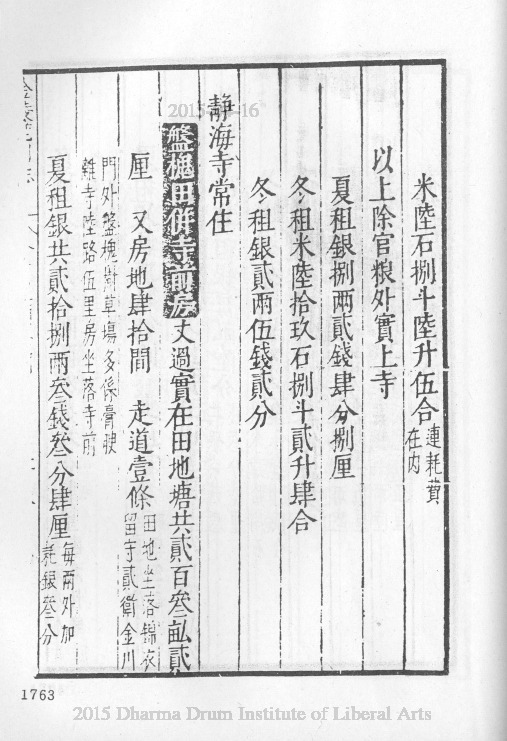 米陸石捌斗陸升伍合連耗費在內
以上除官粮外實上寺
夏租銀捌兩貳錢肆分捌厘
冬租米陸拾玖石捌斗貳升肆合
冬租銀貳兩伍錢貳分
静海寺常住
盤槐田併寺前房丈過實在田地塘共貳百叄畆貳
厘 又房地肆拾間 走道壹條田地坐落錦衣留守貳衛金川
門外盤槐樹草塲多係膏腴
離寺陸路伍里房坐落寺前
夏租銀共貳拾捌兩叄錢叄分肆厘每兩外加耗銀叄分
1763
2015 Dharma Drum Institute of Liberal Arts